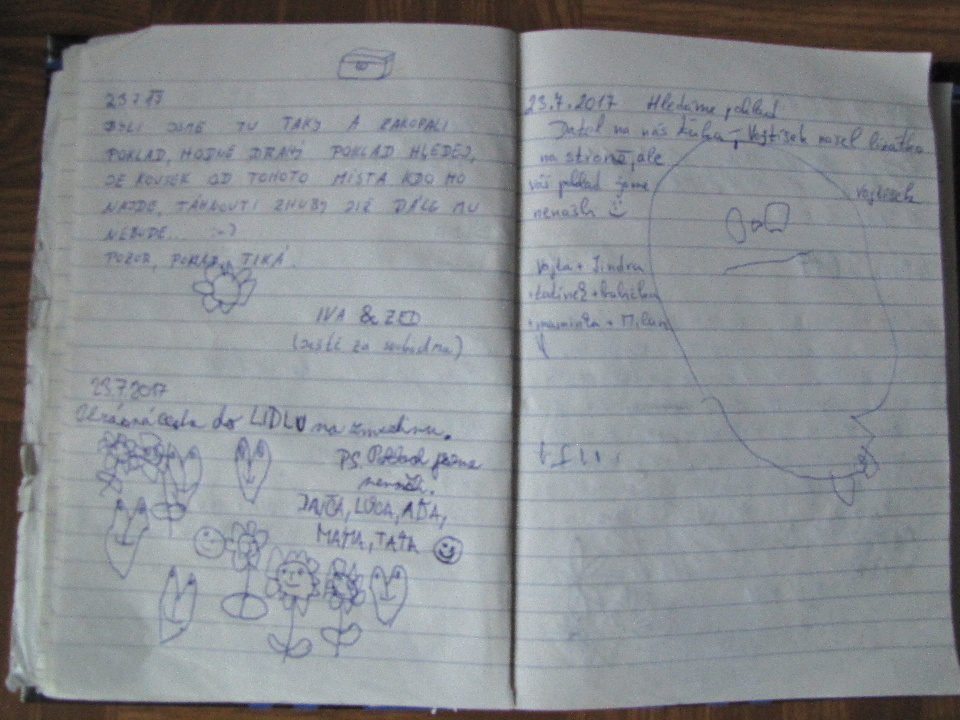 23.7.17
BYLI JSME TU TAKY A ZAKOPALI
POKLAD, HODNĚ DRAHÝ POKLAD HLEDEJ,
JE KOUSEK OD TOHOTO MÍSTA KDO HO
NAJDE, TÁHNOUTI ZHUBY JIŽ DÁLE MU
NEBUDE... :-)
POZOR, POKLAD TIKÁ.
IVA & ZED
(ještě za svobodna)
23.7.2017
Okrásná cesta do LIDLU na zmrzlinu.
PS. Poklad jsme
nenašli.
LUCA, AĎA,
MAMA, TAŤA
23.7.2017 Hledáme poklad
Datel na nás ťuká, Vojtíšek našel lízátko
na stromě, ale
váš poklad jsme
nenašli
Vojtíšek
Vojta + Jindra
+ babička
+ maminka + Milan